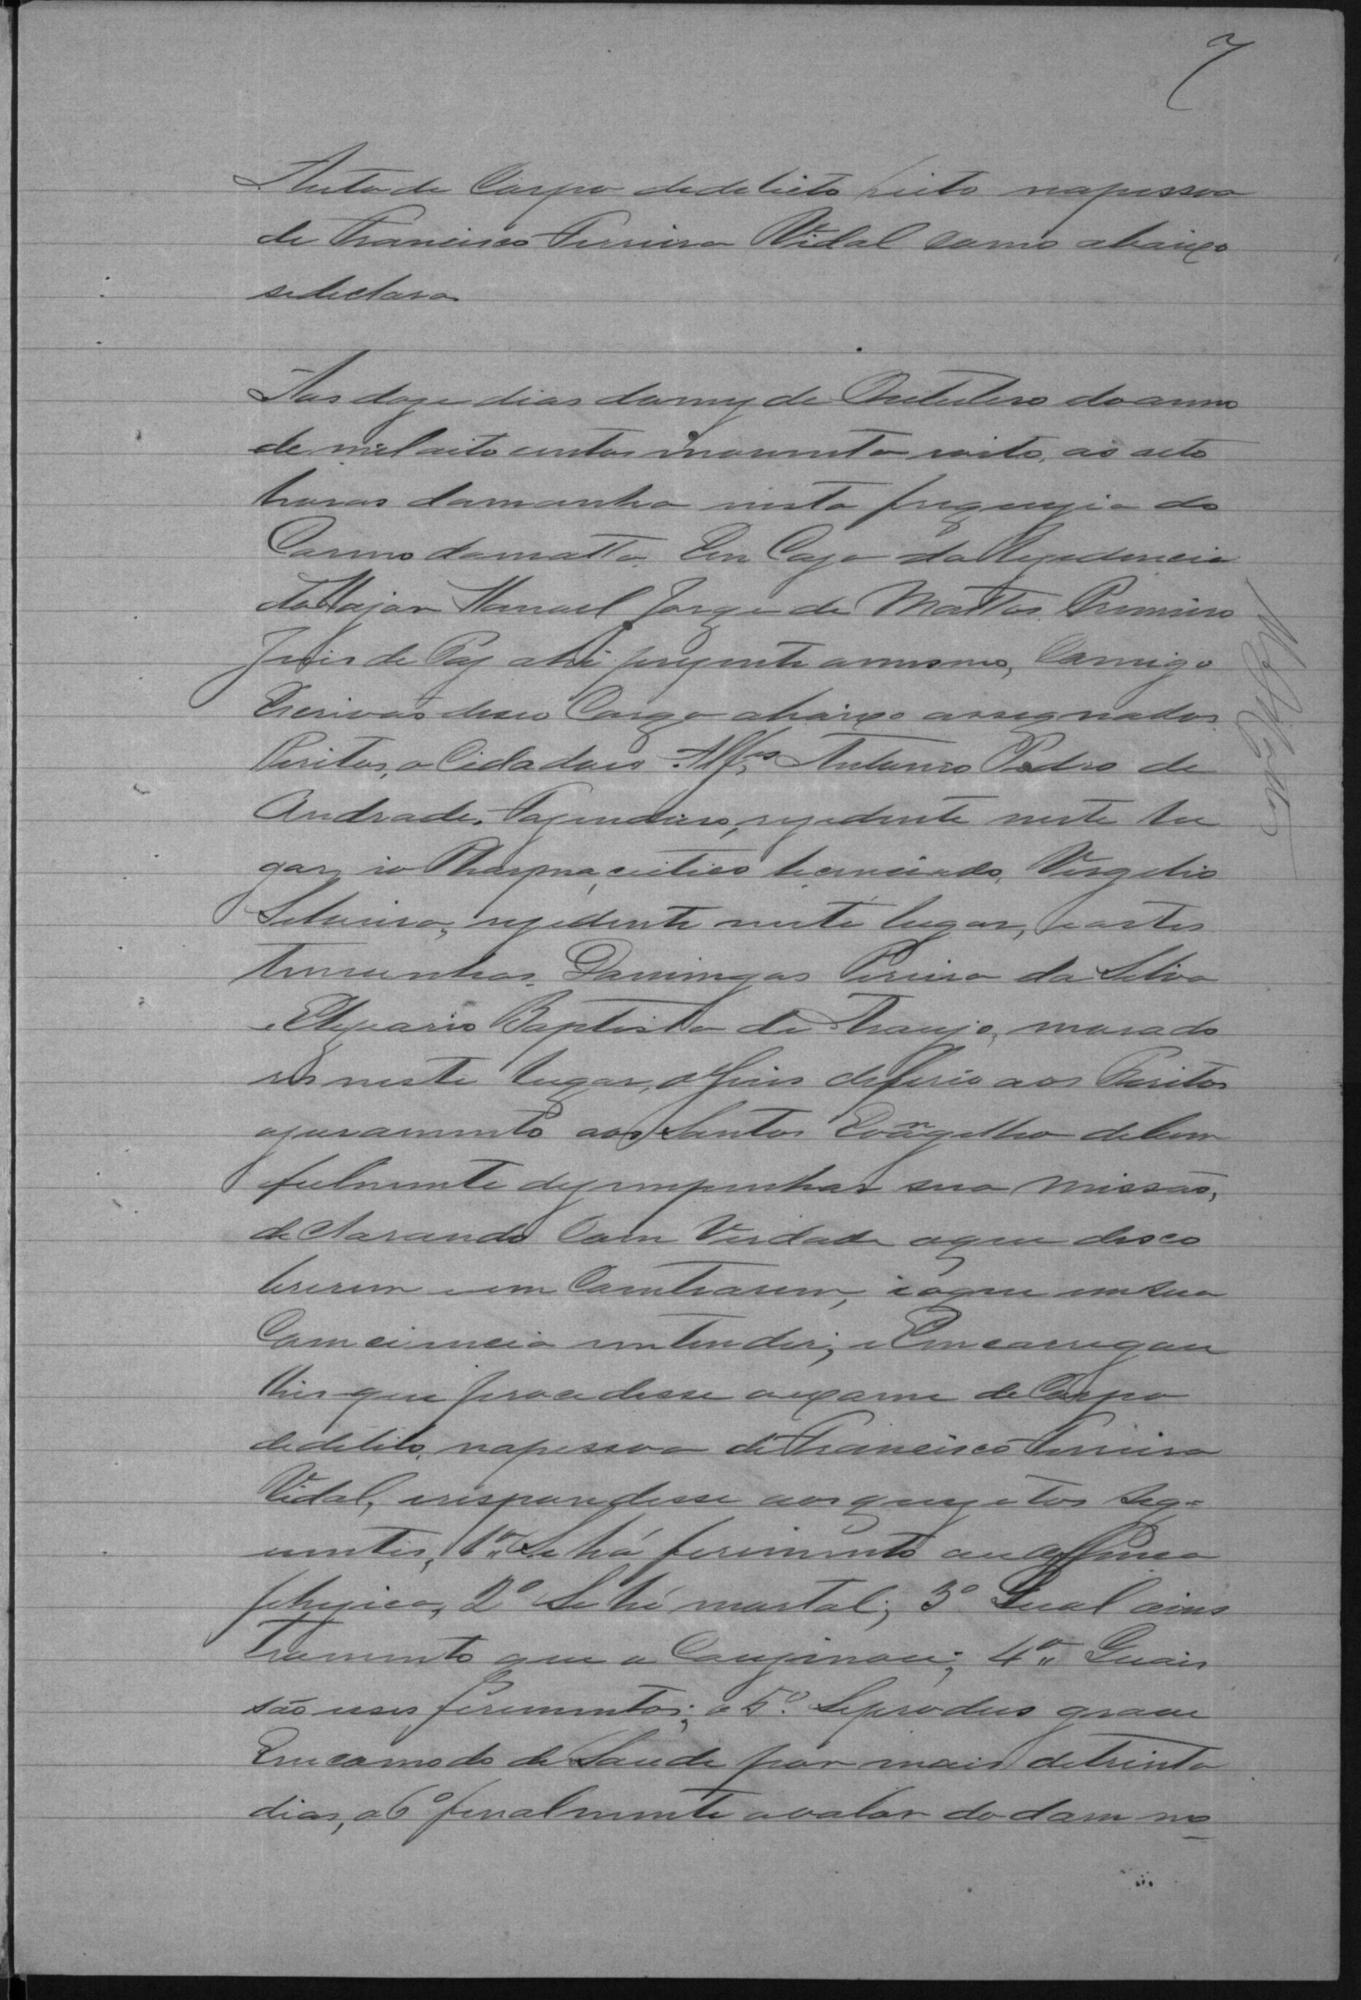 7
Auto de Corpo de delicto feito na pessoa
de Francisco Ferreira Vidal como abaixo
se declara
Aos doze dias do mez de Outubro do anno
de mil oito centos noventa e oito, as oito
horas da manha nesta freguezia do
Carmo da matta. Em Caza da Rezedencia
do Major Manoel Jorge de Mattos Primeiro
Juis de Paz ahi prezente o mesmo, Comigo
Escrivão deseo Cargo abaixo assegnados
Peritos, o Cidadaos Alfes Antonio Pedro de
Andrade, Fazendeiro, rezedente neste lu
gar, io Pharmaceitico licenciado, Virgilio
Silveira, rezedente neste lugar, e as tes
timunhas Domingos Pereira da Silva
e Elziario Baptista de Araujo, morado
res neste lugar, o Juis deferio aos Peritos
ojuramento aos Santos Evangelho de bem
fielmente dezempenhar sua missão,
declarando Com Verdade oque desco
brirem e em Contrarem, eoque em sua
Comciencia entender; e Emcarregou
lhes que procedesse o exame de Corpo
dedelito na pessoa de Francisco Ferreira
Vidal, erespondesse aos quezetos Seg=
uintes, 1º Se há ferimento ou offinca
phezica, 2º Se hé mortal; 3º Qual oins
tromento que o Couzinou; 4º Quais
são eses ferimentos; o 5º Se produs grave
Emcomodo de Saude por mais de trinta
dias, o 6º finalmente o valor do dam no